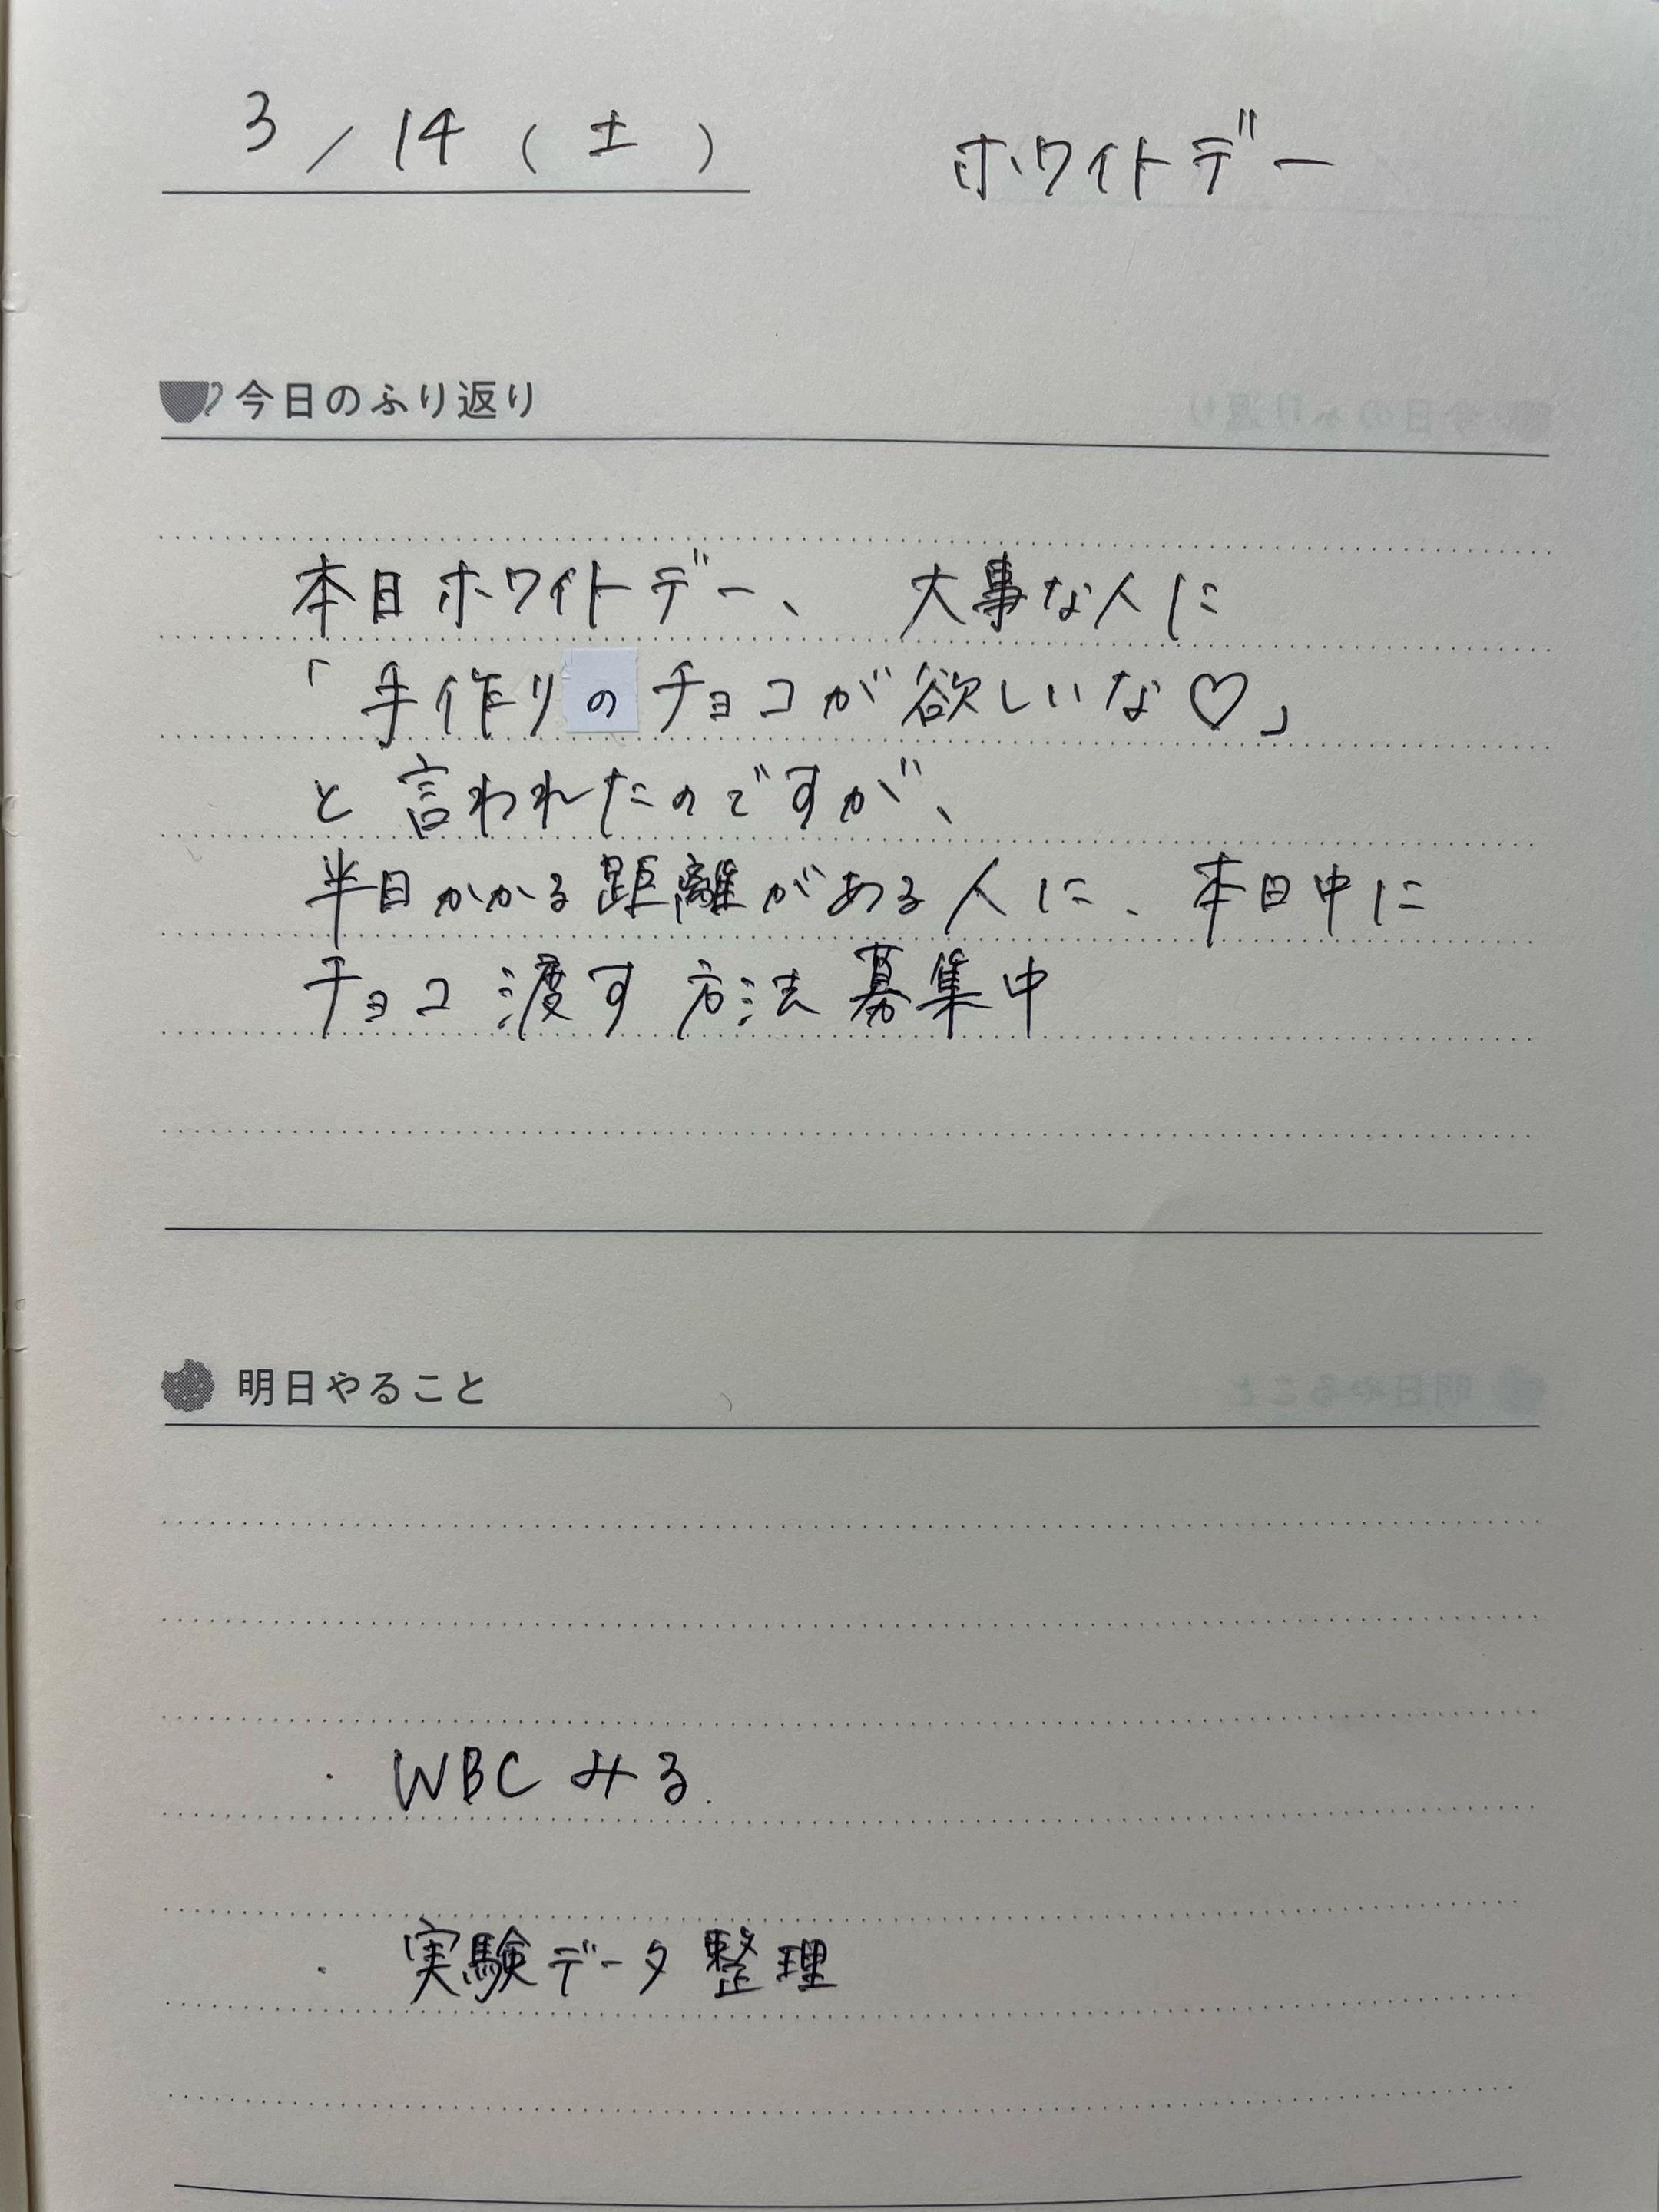 3/14(土) ホワイトデー
今日のふり返り
本日ホワイトデー、 大事な人に
「手作りのチョコが欲しいな♡」
と言われたのですが、
半日かかる距離がある人に、本日中に
チョコ渡す方法募集中
明日やること
・WBCみる.
・実験データ整理